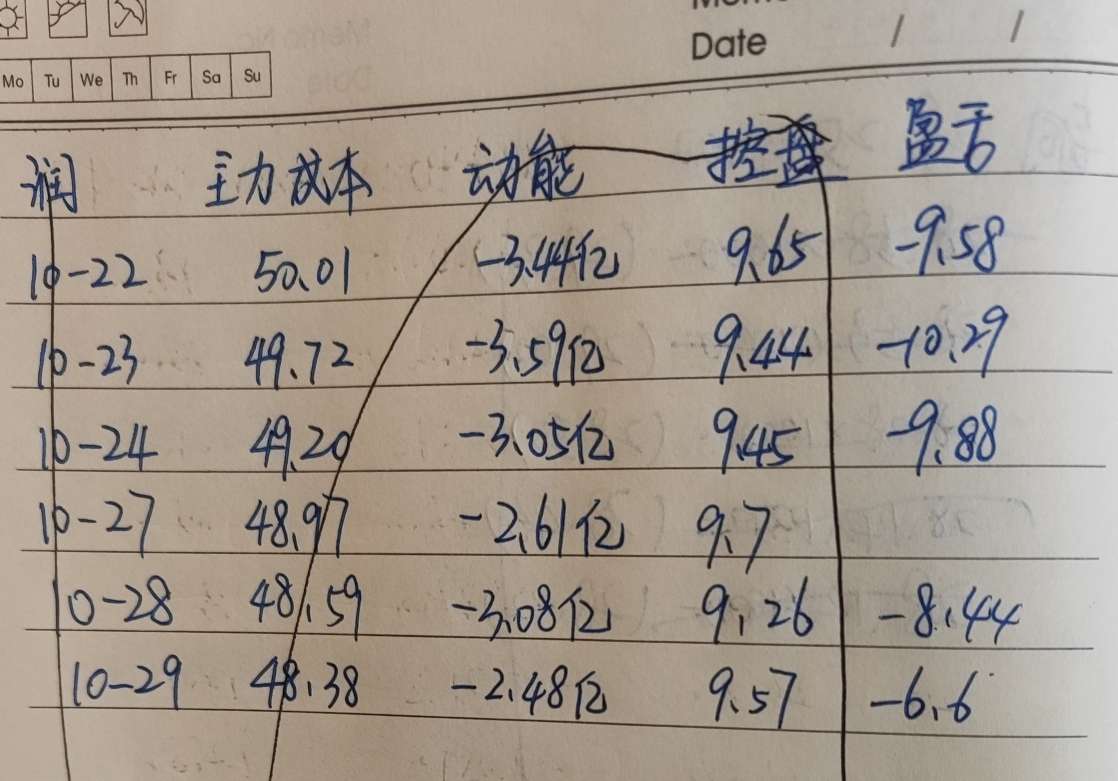 Date / /
Mo Tu We Th Fr Sa Su
润 主力成本 动能 控盘 盈亏
10-22 50.01 -3.44亿 9.65 -9.58
10-23 49.72 -3.59亿 9.44 -10.29
10-24 49.20 -3.05亿 9.45 -9.88
10-27 48.97 -2.61亿 9.7
10-28 48.59 -3.08亿 9.26 -8.44
10-29 48.38 -2.48亿 9.57 -6.6